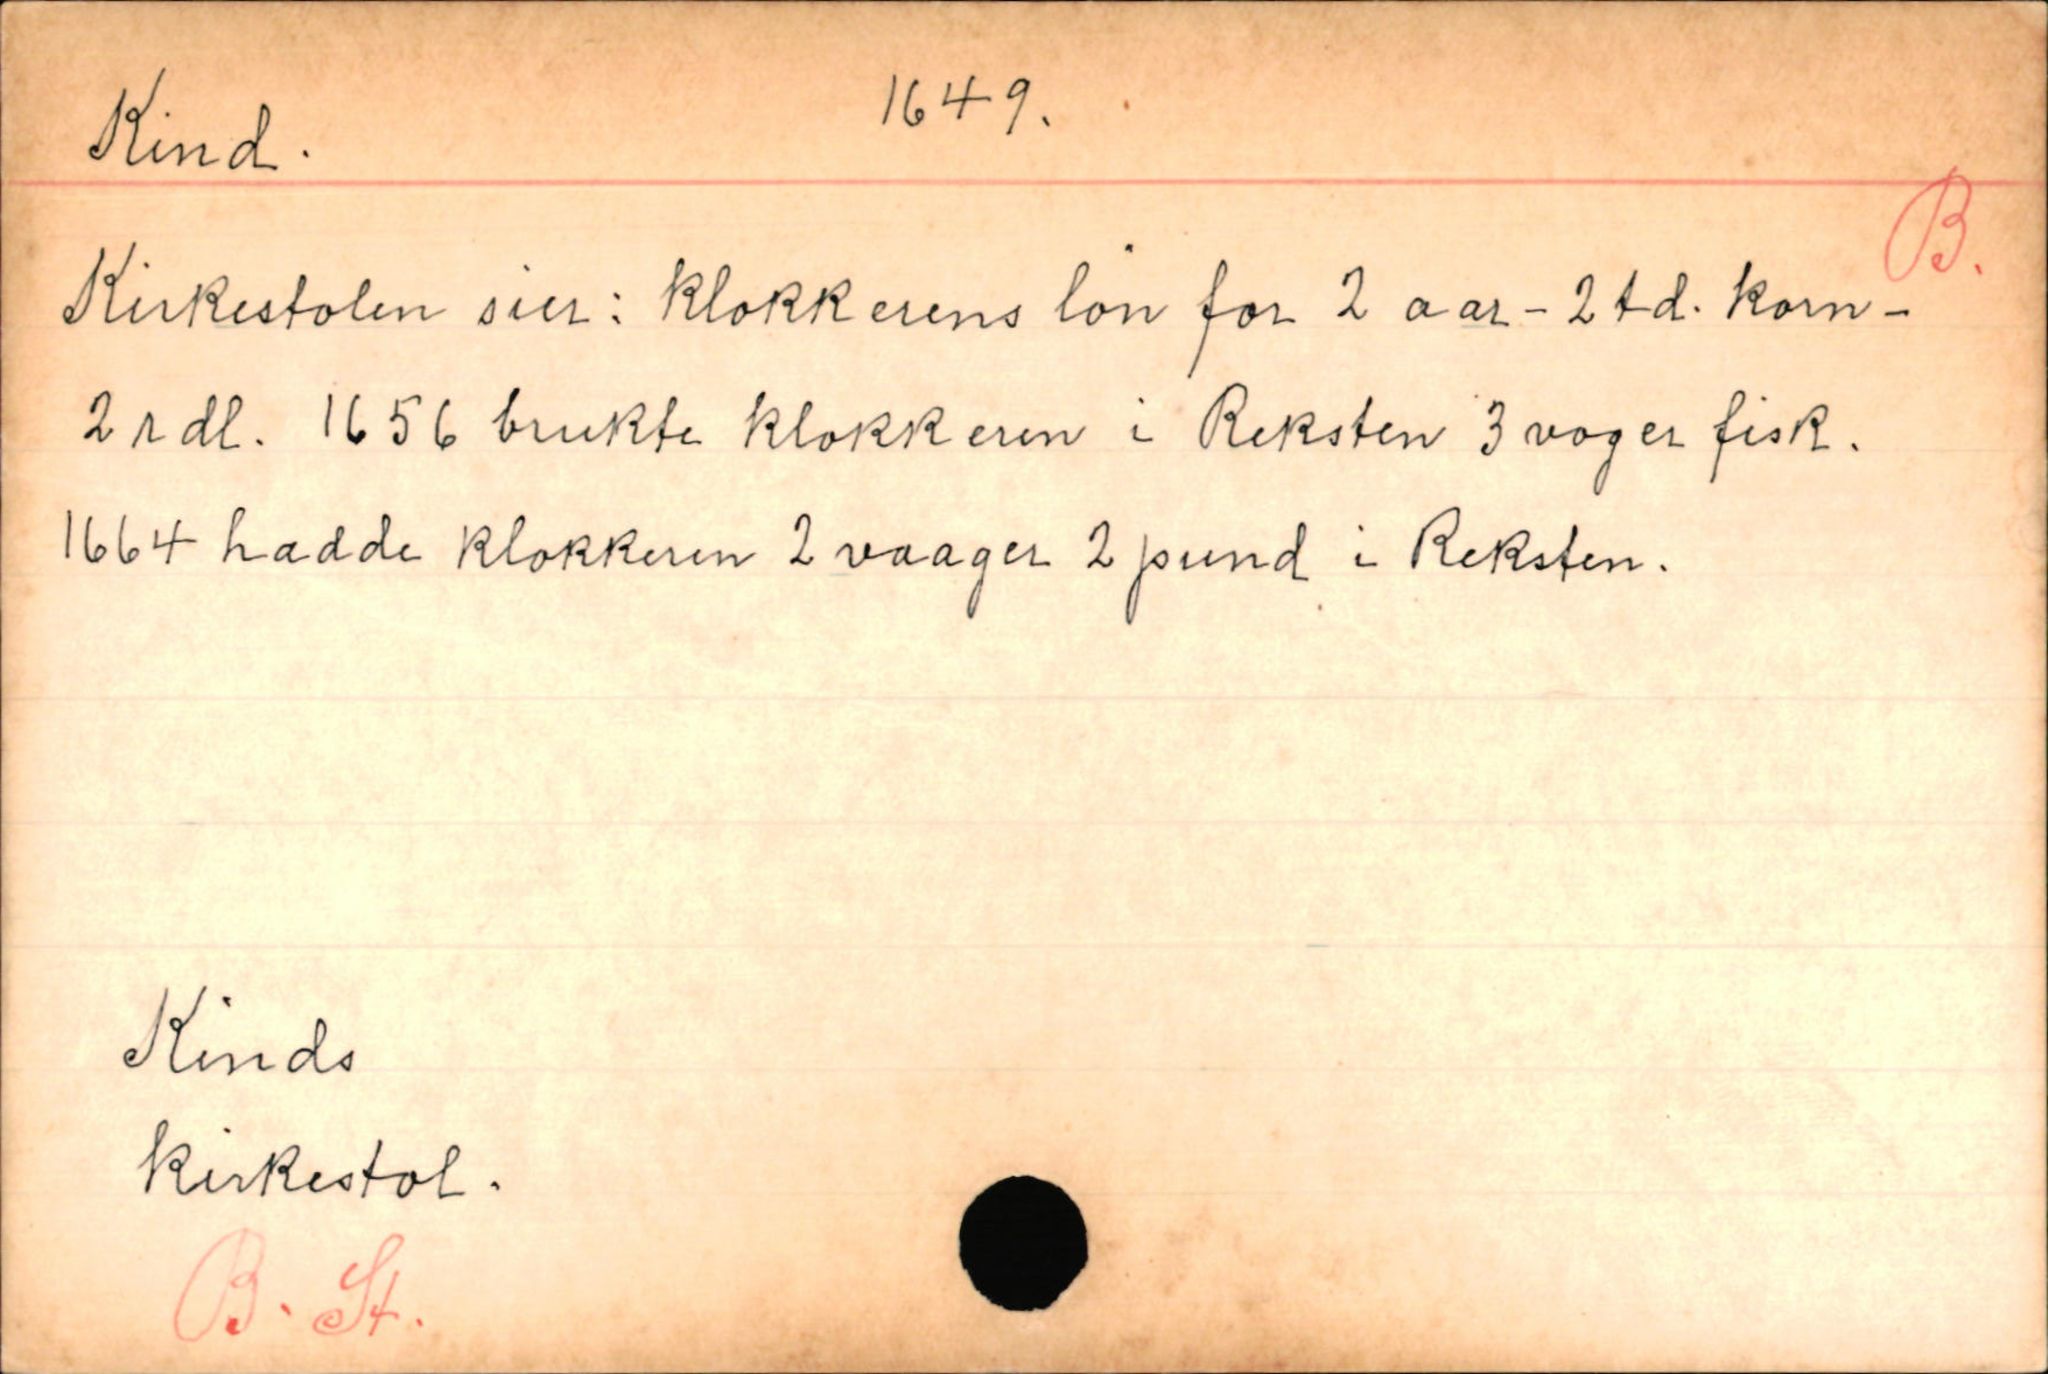 Kind. 1649.
B.
Kirkestolen sier: klokkerens lön for 2 aar - 2 td. korn -
2 rdl. 1656 brukte klokkeren i Reksten 3 voger fisk.
1664 hadde klokkeren 2 vaager 2 pund i Reksten.
Kinds
kirkestol.
B. St.